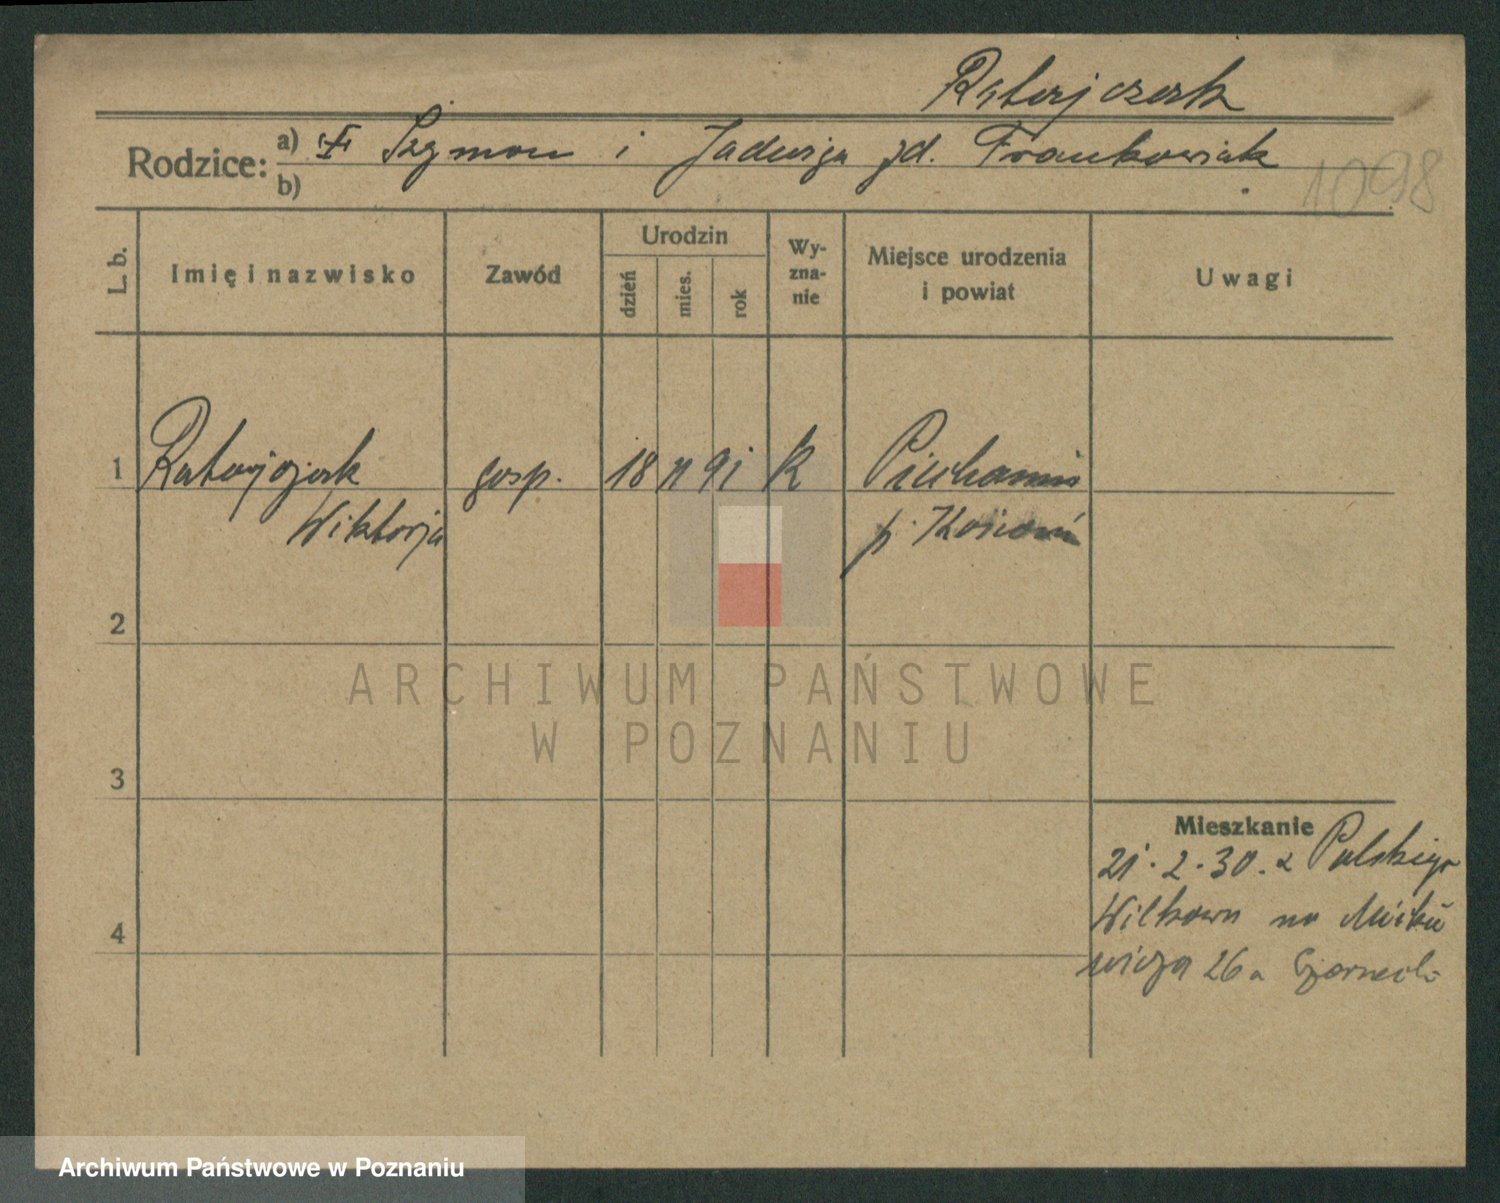 Ratajczak
Rodzice: a) Szymon i Jadwiga zd. Frankowiak
b)
1098
L. b.
Imię i nazwisko
Zawód
Urodzin
dzień
mies.
rok
Wy-
zna-
nie
Miejsce urodzenia
i powiat
Uwagi
1 Ratajczak gosp. 18 11 91 k
Wiktorja
p.
2
3
4
Mieszkanie
21.2.30. z Polskiego
Wilkowa na Micki
wicza 26 a
ARCHIWUM PAŃSTWOWE
W POZNANIU
Archiwum Państwowe w Poznaniu